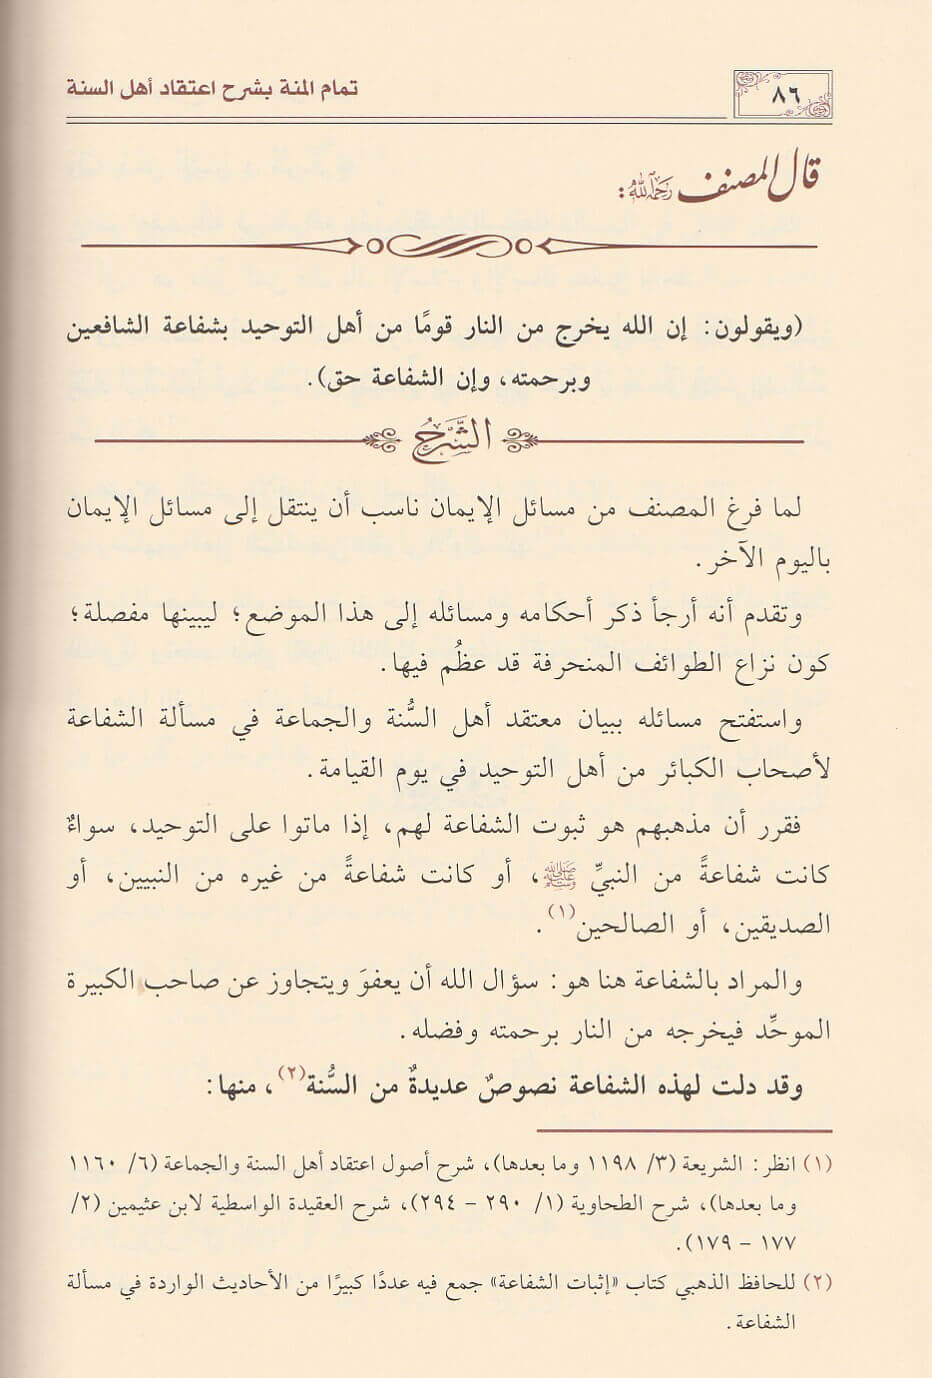 ٨٦
تمام المنة بشرح اعتقاد أهل السنة
قال المصنف رحمه الله:
(ويقولون: إن الله يخرج من النار قومًا من أهل التوحيد بشفاعة الشافعين
وبرحمته، وإن الشفاعة حق).
الشَّرْحُ
لما فرغ المصنف من مسائل الإيمان ناسب أن ينتقل إلى مسائل الإيمان
باليوم الآخر.
وتقدم أنه أرجأ ذكر أحكامه ومسائله إلى هذا الموضع؛ ليبينها مفصلة؛
كون نزاع الطوائف المنحرفة قد عظُم فيها.
واستفتح مسائله ببيان معتقد أهل السُّنة والجماعة في مسألة الشفاعة
لأصحاب الكبائر من أهل التوحيد في يوم القيامة.
فقرر أن مذهبهم هو ثبوت الشفاعة لهم، إذا ماتوا على التوحيد، سواءٌ
كانت شفاعةً من النبيِّ ﷺ، أو كانت شفاعةً من غيره من النبيين، أو
الصديقين، أو الصالحين(١).
والمراد بالشفاعة هنا هو: سؤال الله أن يعفوَ ويتجاوز عن صاحب الكبيرة
الموحِّد فيخرجه من النار برحمته وفضله.
وقد دلت لهذه الشفاعة نصوصٌ عديدةٌ من السُّنة(٢)، منها:
(١) انظر: الشريعة (٣/ ١١٩٨ وما بعدها)، شرح أصول اعتقاد أهل السنة والجماعة (٦/ ١١٦٠
وما بعدها)، شرح الطحاوية (١/ ٢٩٠ – ٢٩٤)، شرح العقيدة الواسطية لابن عثيمين (٢/
١٧٧ – ١٧٩).
(٢) للحافظ الذهبي كتاب «إثبات الشفاعة» جمع فيه عددًا كبيرًا من الأحاديث الواردة في مسألة
الشفاعة.